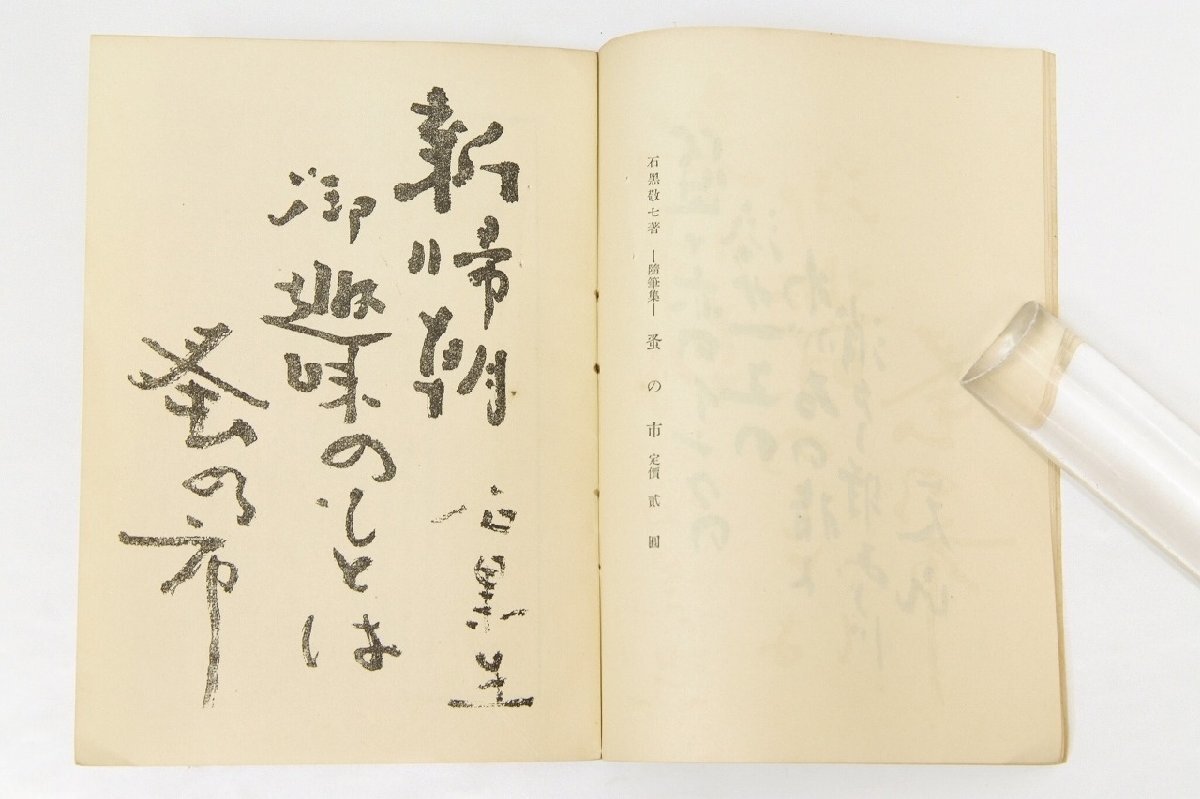 石黒敬七著 ―隨筆集― 蚤の市 定價貳圓
新帰朝 石黒生
御趣味のことは
蚤の市